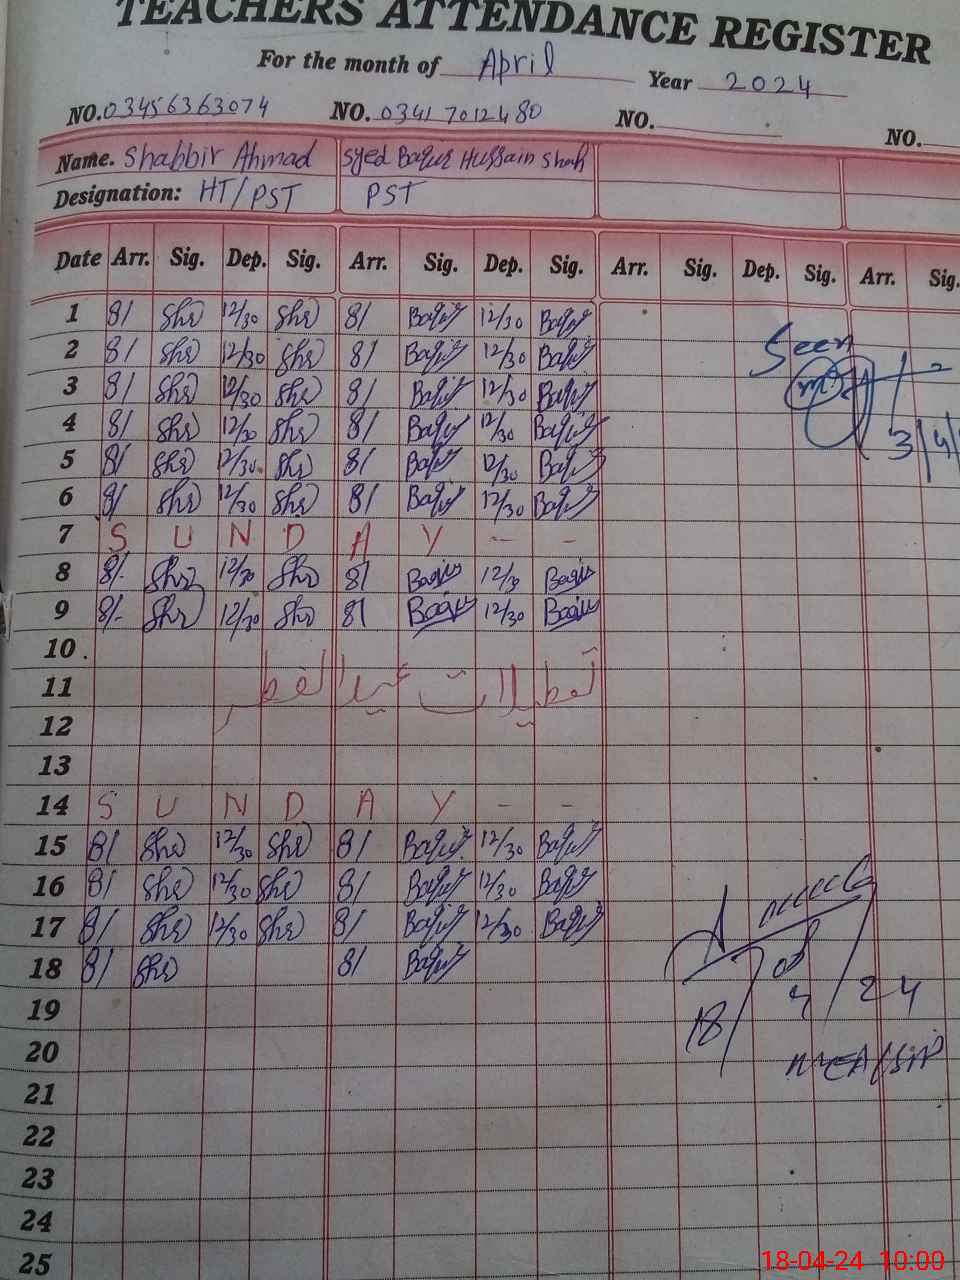 TEACHERS ATTENDANCE REGISTER
For the month of April Year 2024
NO. 03456363074 NO. 03417012480 NO. NO.
Name. Shabbir Ahmad Syed Baqur Hussain Shah
Designation: HT/PST PST
Date Arr. Sig. Dep. Sig. Arr. Sig. Dep. Sig. Arr. Sig. Dep. Sig. Arr. Sig.
1 8/ Shr 12/30 Shr 8/ Baqur 12/30 Baqur
2 8/ Shr 12/30 Shr 8/ Baqur 12/30 Baqur
Seen
3 8/ Shr 12/30 Shr 8/ Baqur 12/30 Baqur
4 8/ Shr 12/30 Shr 8/ Baqur 12/30 Baqur
3/4/
5 8/ Shr 12/30 Shr 8/ Baqur 12/30 Baqur
6 8/ Shr 12/30 Shr 8/ Baqur 12/30 Baqur
7 S U N D A Y - -
8 8/- Shr 12/30 Shr 8/ Baqur 12/30 Baqur
9 8/- Shr 12/30 Shr 8/ Baqur 12/30 Baqur
10
11 تعطیلات عید الفطر
12
13
14 S U N D A Y - -
15 8/ Shr 12/30 Shr 8/ Baqur 12/30 Baqur
16 8/ Shr 12/30 Shr 8/ Baqur 12/30 Baqur
17 8/ Shr 12/30 Shr 8/ Baqur 12/30 Baqur
18 8/ Shr 8/ Baqur
19 18/4/24
20
21
22
23
24
25
18-04-24 10:00